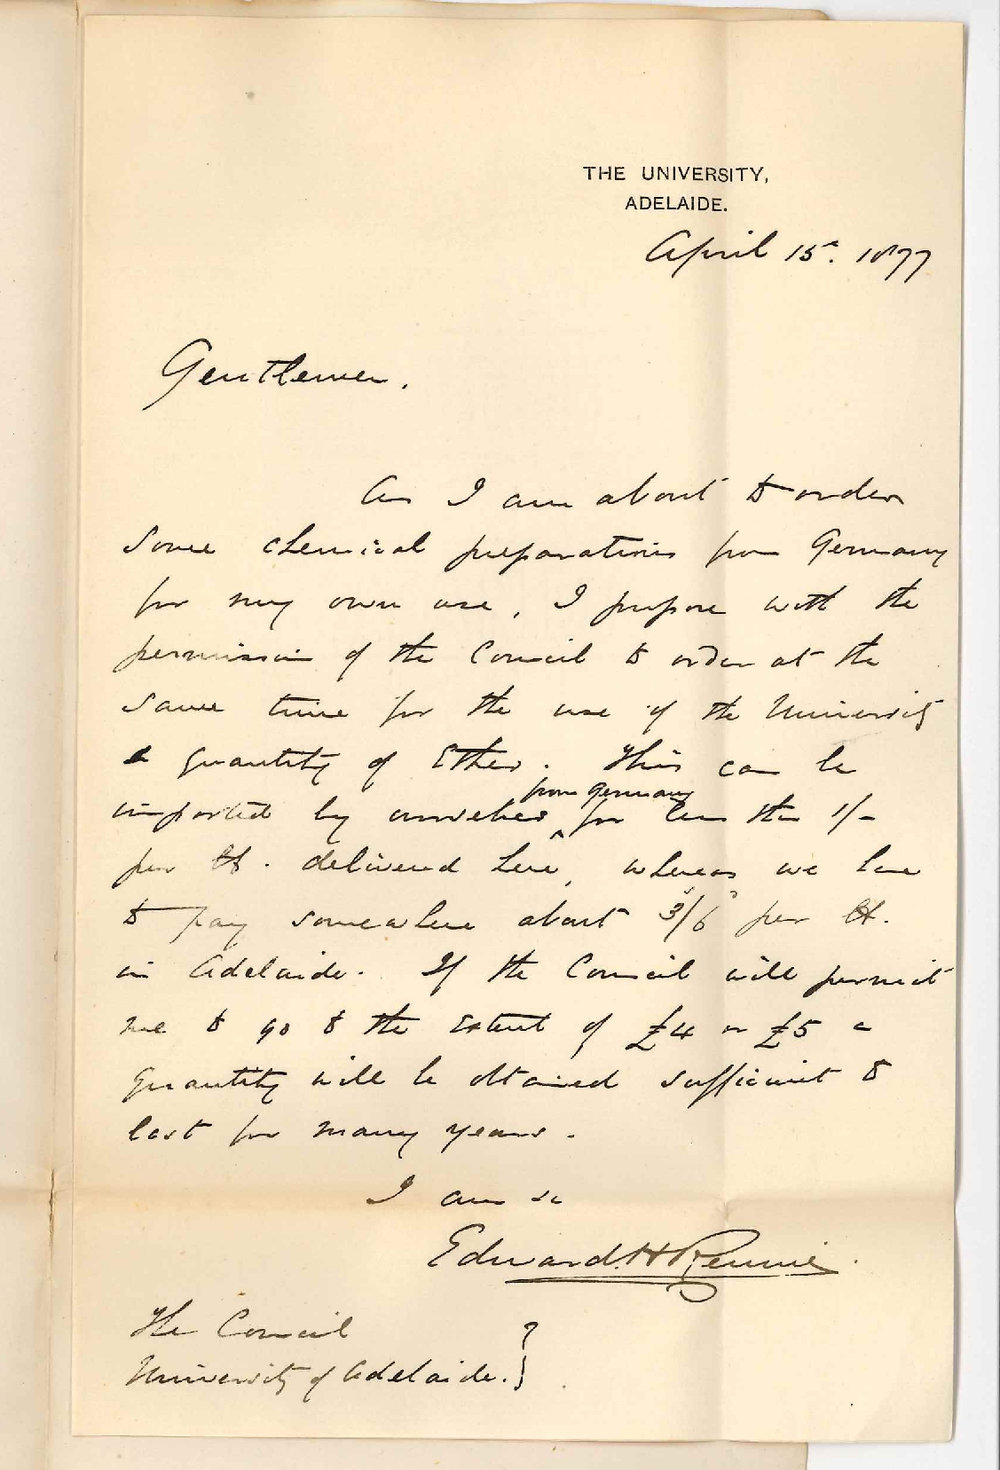 THE UNIVERSITY,
ADELAIDE.
April 15th. 1877
Gentlemen.
As I am about to order
some chemical preparations from Germany
for my own use, I propose with the
permission of the Council to order at the
same time for the use of the University
a quantity of Ether. This can be
from Germany
imported by ourselves for less than 1/-
per lb. delivered here, whereas we have
to pay somewhere about 3/6 per lb.
in Adelaide. If the Council will permit
me to go to the extent of £4 or £5 a
quantity will be obtained sufficient to
last for many years.
I am &c
Edward H Rennie.
The Council
University of Adelaide. }